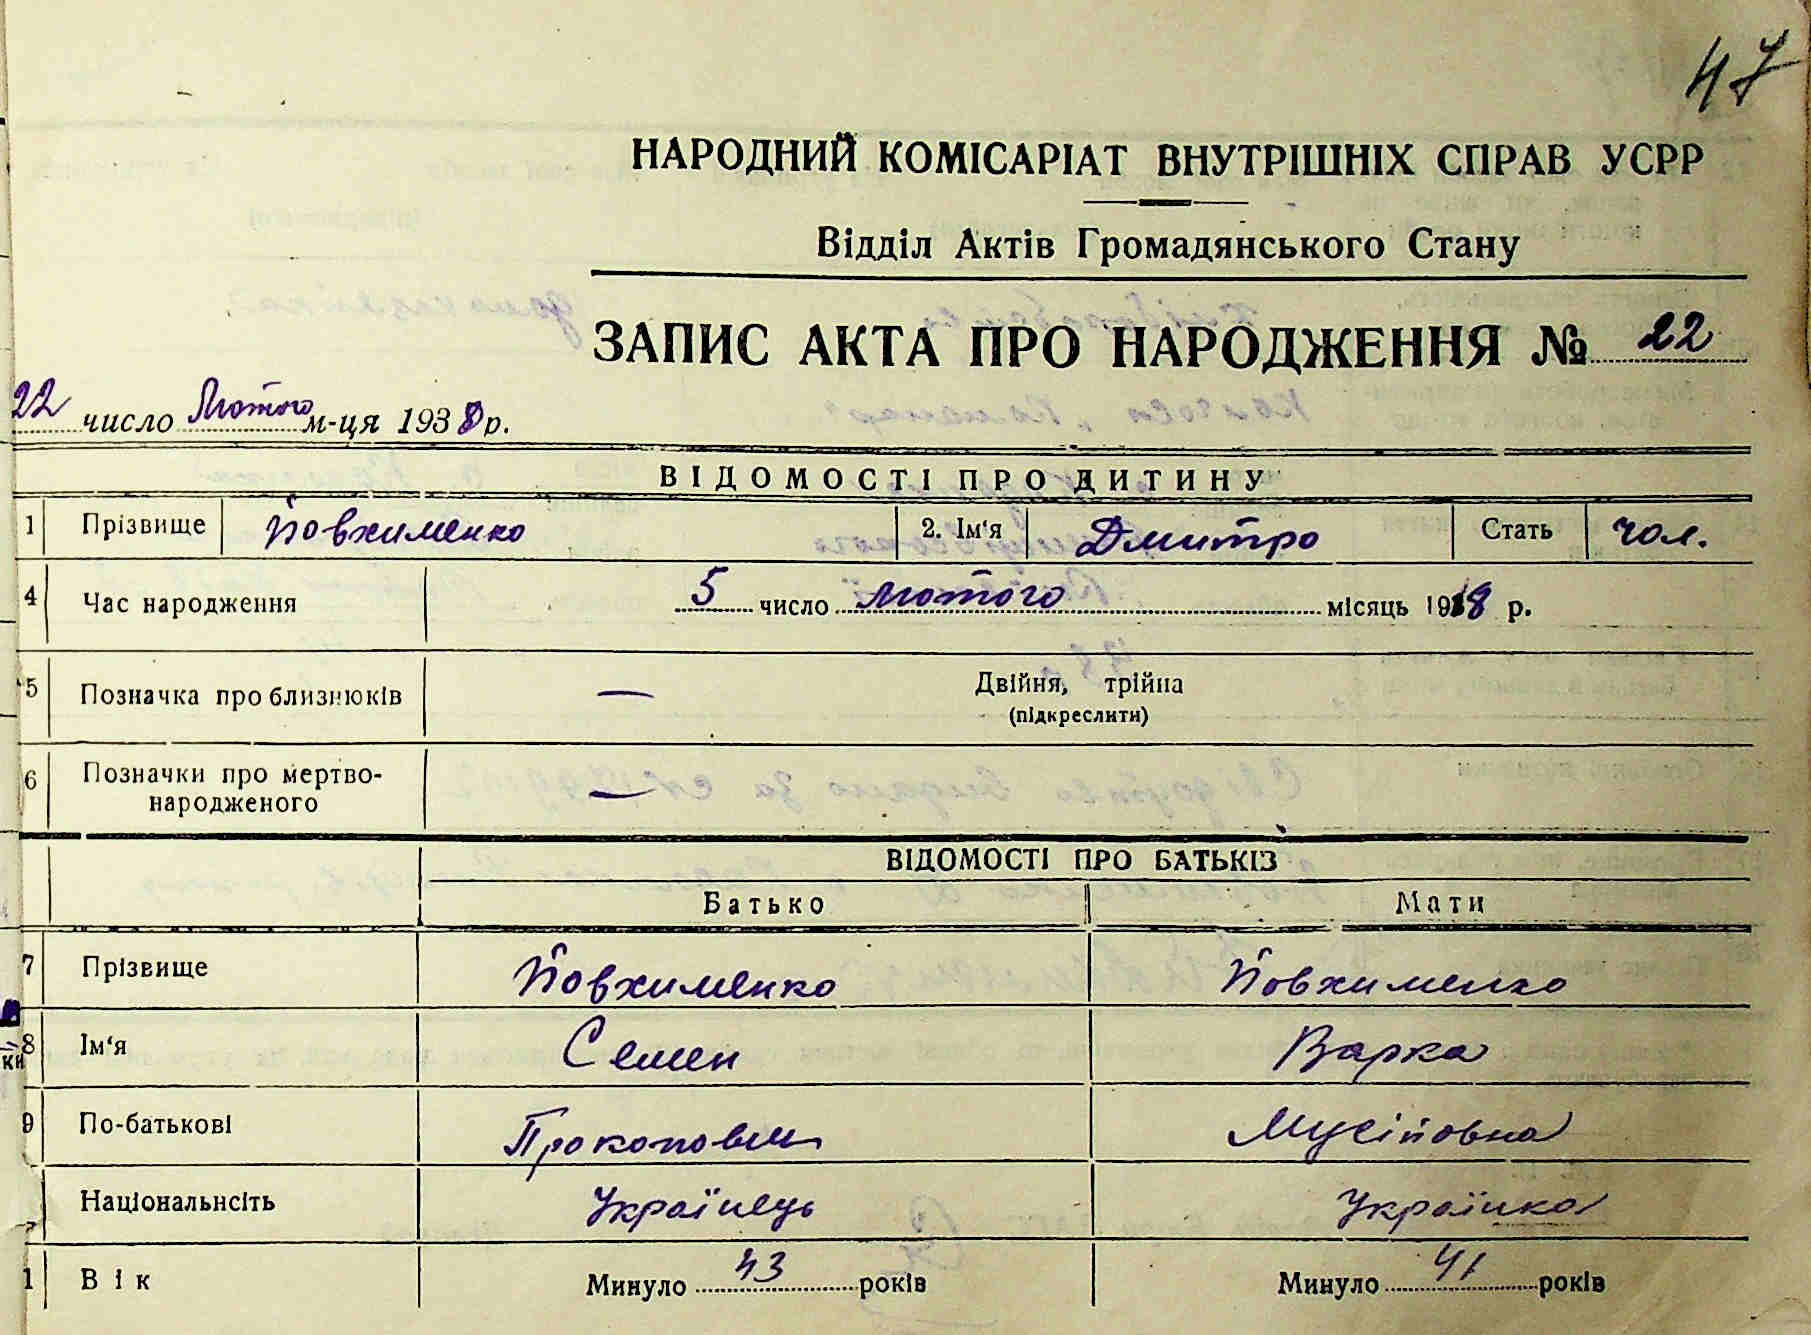 47
НАРОДНИЙ КОМІСАРІАТ ВНУТРІШНІХ СПРАВ УСРР
Відділ Актів Громадянського Стану
ЗАПИС АКТА ПРО НАРОДЖЕННЯ № 22
22 число Лютого м-ця 1938 р.
ВІДОМОСТІ ПРО ДИТИНУ
1 Прізвище Йовхименко 2. Ім‘я Дмитро Стать чол.
4 Час народження 5 число лютого місяць 1938 р.
5 Позначка про близнюків — Двійня, трійпа
(підкреслити)
6 Позначки про мертво-
народженого —
ВІДОМОСТІ ПРО БАТЬКІЗ
Батько Мати
7 Прізвище Йовхименко Йовхименко
8 Ім‘я Семен Варка
9 По-батькові Прокопович Мусіївна
Національнсіть Українець Українка
1 Вік Минуло 43 років Минуло 41 років